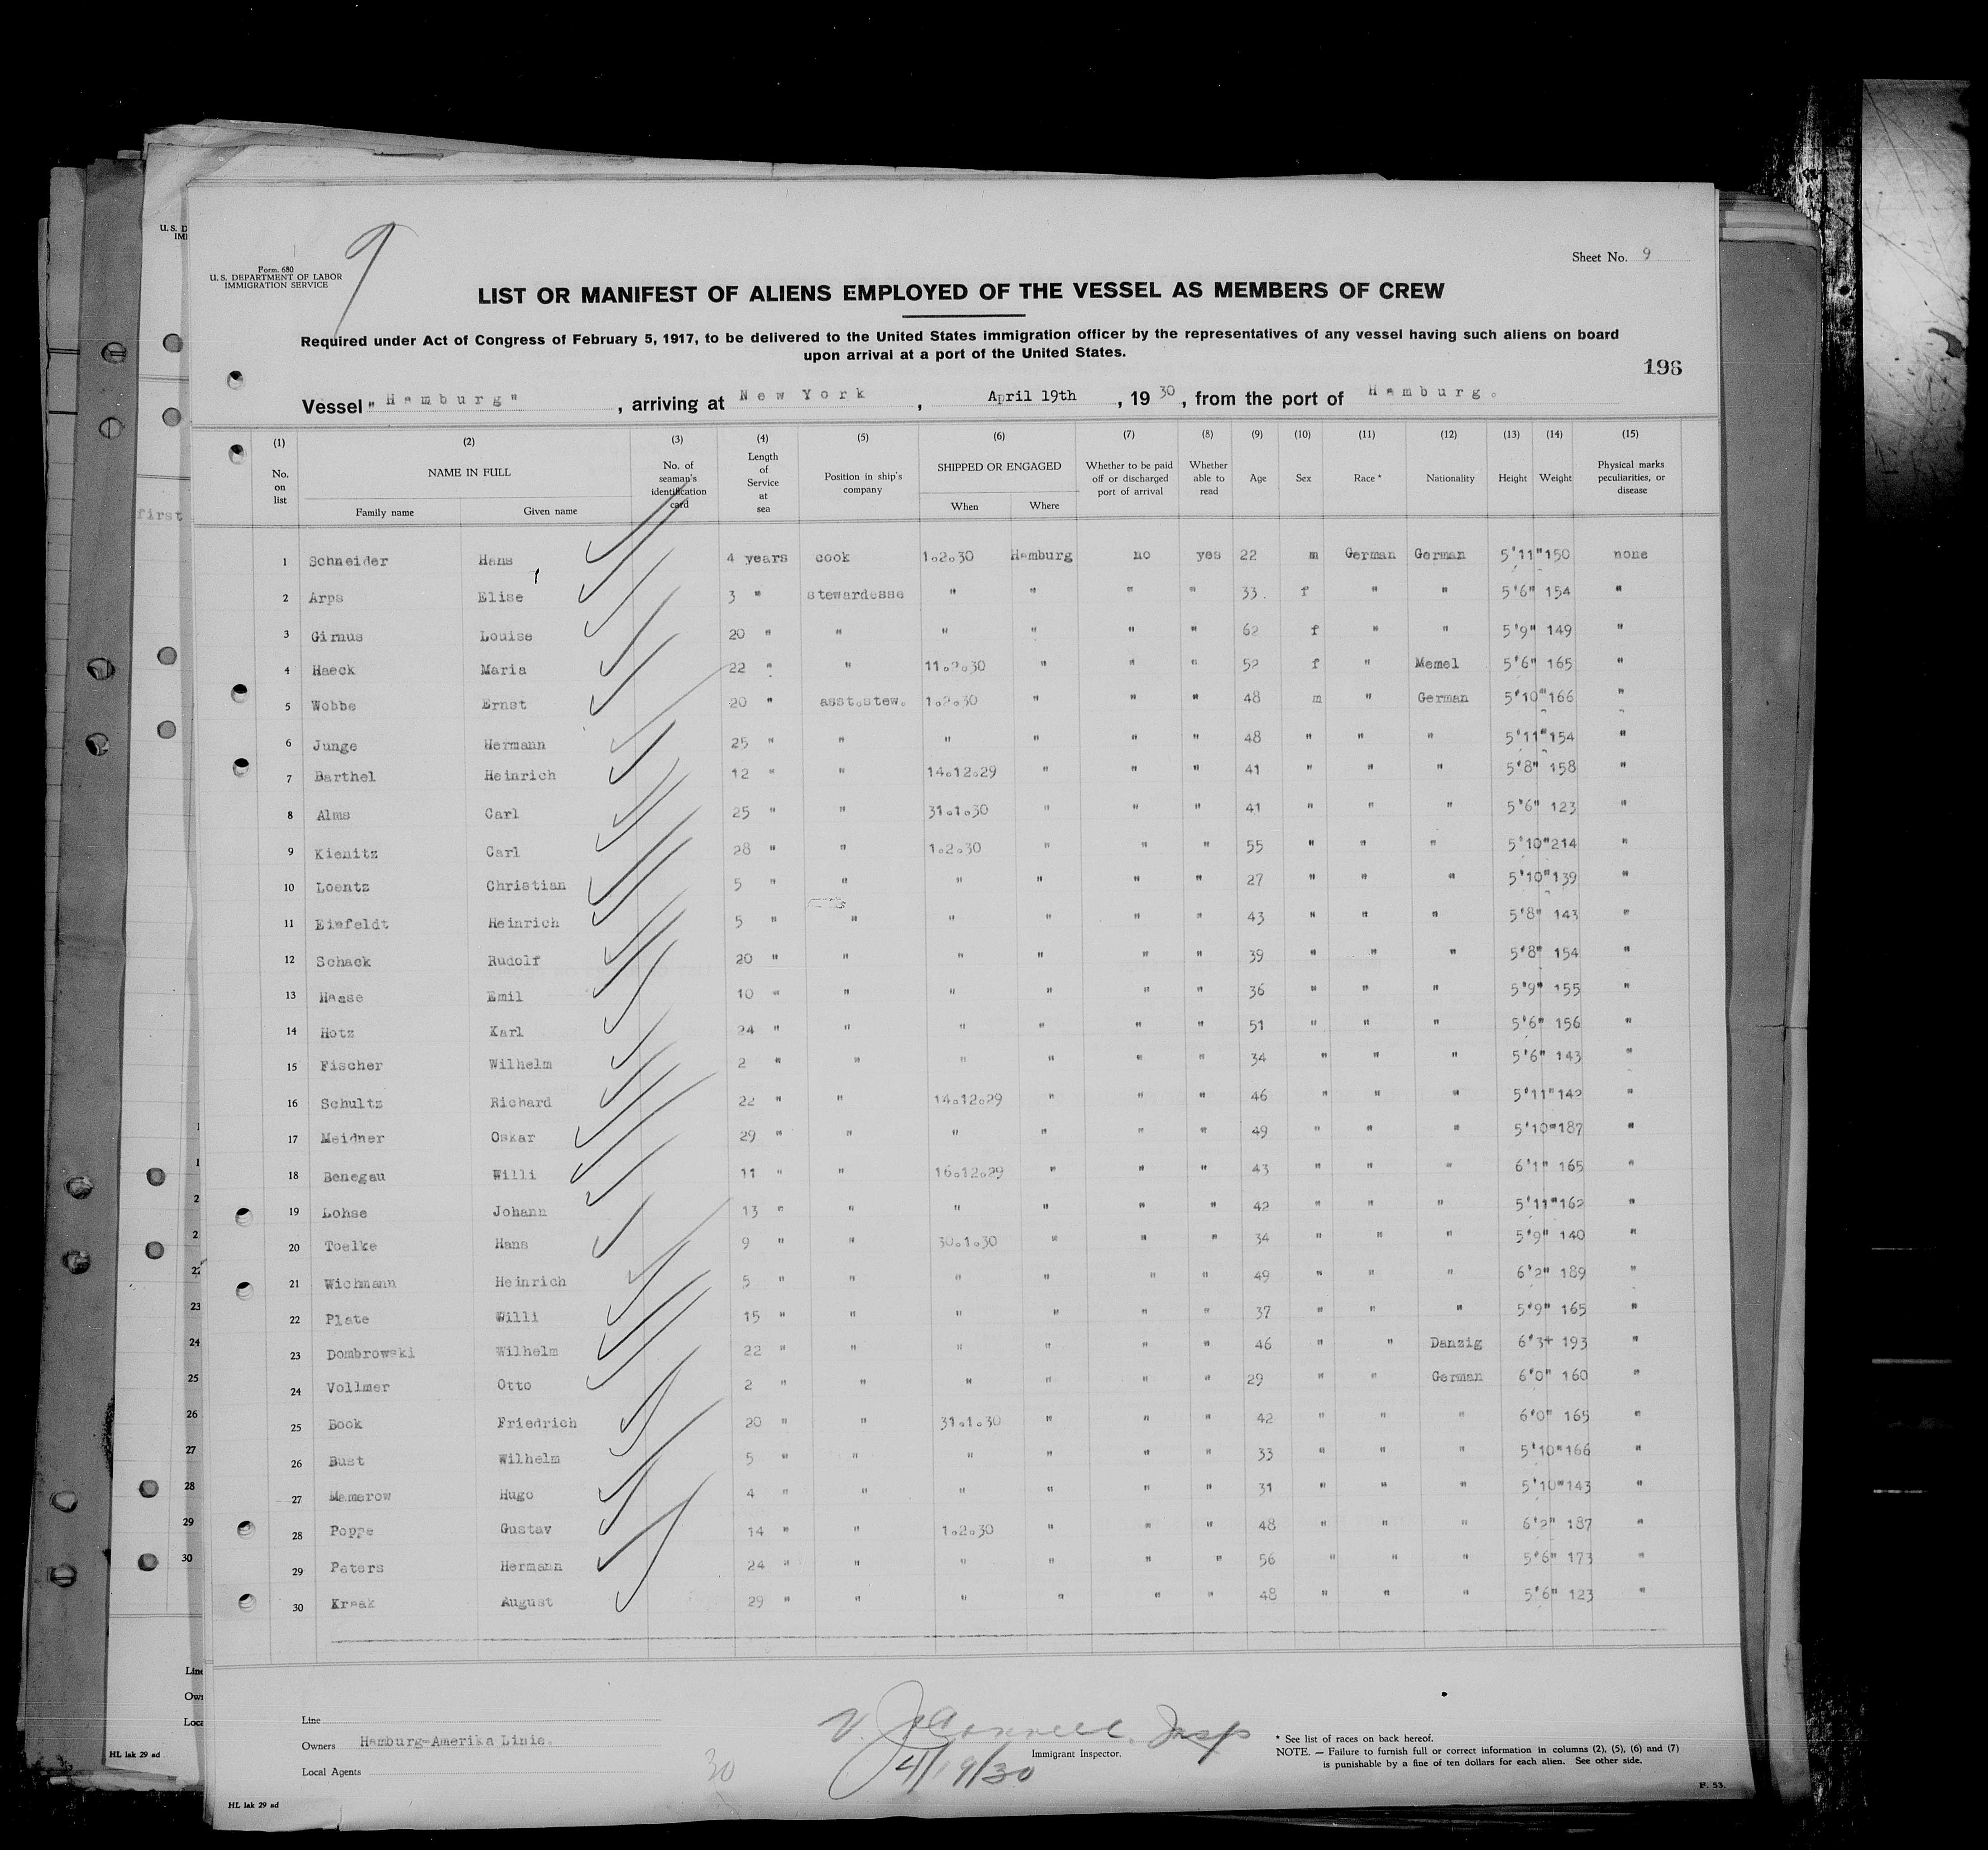 9
Form. 680
U. S. DEPARTMENT OF LABOR
IMMIGRATION SERVICE
Sheet No. 9
LIST OR MANIFEST OF ALIENS EMPLOYED OF THE VESSEL AS MEMBERS OF CREW
Required under Act of Congress of February 5, 1917, to be delivered to the United States immigration officer by the representatives of any vessel having such aliens on board
upon arrival at a port of the United States.
196
Vessel "Hamburg", arriving at New York, April 19th, 1930, from the port of Hamburg.
(1) (2) (3) (4) (5) (6) (7) (8) (9) (10) (11) (12) (13) (14) (15)
No. on list NAME IN FULL Family name Given name No. of seaman's identification card Length of Service at sea Position in ship's company SHIPPED OR ENGAGED When Where Whether to be paid off or discharged port of arrival Whether able to read Age Sex Race * Nationality Height Weight Physical marks peculiarities, or disease
1 Schneider Hans 4 years cook 1.2.30 Hamburg no yes 22 m German German 5'11" 150 none
2 Arps Elise 3 " stewardesse " " " " 33 f " " 5'6" 154 "
3 Girnus Louise 20 " " " " " " 62 f " " 5'9" 149 "
4 Haeck Maria 22 " " 11.2.30 " " " 52 f " Memel 5'6" 165 "
5 Wobbe Ernst 20 " asst.stew. 1.2.30 " " " 48 m " German 5'10" 166 "
6 Junge Hermann 25 " " " " " " 48 " " " 5'11" 154 "
7 Barthel Heinrich 12 " " 14.12.29 " " " 41 " " " 5'8" 158 "
8 Alms Carl 25 " " 31.1.30 " " " 41 " " " 5'6" 123 "
9 Kienitz Carl 28 " " 1.2.30 " " " 55 " " " 5'10" 214 "
10 Loentz Christian 5 " " " " " " 27 " " " 5'10" 139 "
11 Eimfeldt Heinrich 5 " " " " " " 43 " " " 5'8" 143 "
12 Schack Rudolf 20 " " " " " " 39 " " " 5'8" 154 "
13 Hasse Emil 10 " " " " " " 36 " " " 5'9" 155 "
14 Hotz Karl 24 " " " " " " 51 " " " 5'6" 156 "
15 Fischer Wilhelm 2 " " " " " " 34 " " " 5'6" 143 "
16 Schultz Richard 22 " " 14.12.29 " " " 46 " " " 5'11" 142 "
17 Meidner Oskar 29 " " " " " " 49 " " " 5'10" 187 "
18 Benegau Willi 11 " " 16.12.29 " " " 43 " " " 6'1" 165 "
19 Lohse Johann 13 " " " " " " 42 " " " 5'11" 162 "
20 Toelke Hans 9 " " 30.1.30 " " " 34 " " " 5'9" 140 "
21 Wichmann Heinrich 5 " " " " " " 49 " " " 6'2" 189 "
22 Plate Willi 15 " " " " " " 37 " " " 5'9" 165 "
23 Dombrowski Wilhelm 22 " " " " " " 46 " " Danzig 6'3+ 193 "
24 Vollmer Otto 2 " " " " " " 29 " " German 6'0" 160 "
25 Bock Friedrich 20 " " 31.1.30 " " " 42 " " " 6'0" 165 "
26 Bust Wilhelm 5 " " " " " " 33 " " " 5'10" 166 "
27 Mamerow Hugo 4 " " " " " " 31 " " " 5'10" 143 "
28 Poppe Gustav 14 " " 1.2.30 " " " 48 " " " 6'2" 187 "
29 Peters Hermann 24 " " " " " " 56 " " " 5'6" 173 "
30 Kraak August 29 " " " " " " 48 " " " 5'6" 123 "
Line
Owners Hamburg-Amerika Linie.
Local Agents
30
Insp
Immigrant Inspector.
4/19/30
* See list of races on back hereof.
NOTE. — Failure to furnish full or correct information in columns (2), (5), (6) and (7)
is punishable by a fine of ten dollars for each alien. See other side.
F. 53.
HL lak 29 ad
HL lak 29 ad
first